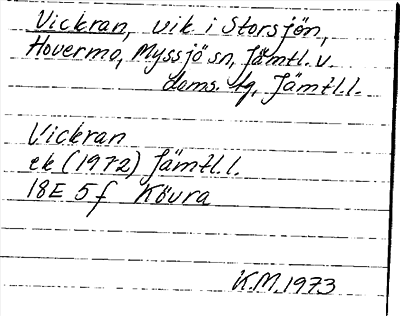 Vickran, vik i Storsjön,
Hovermo, Myssjö sn, Jämtl. v.
doms. tg, Jämtl.l.
Vickran
ek (1972) Jämtl.l.
18E 5f Kövra
K.M. 1973